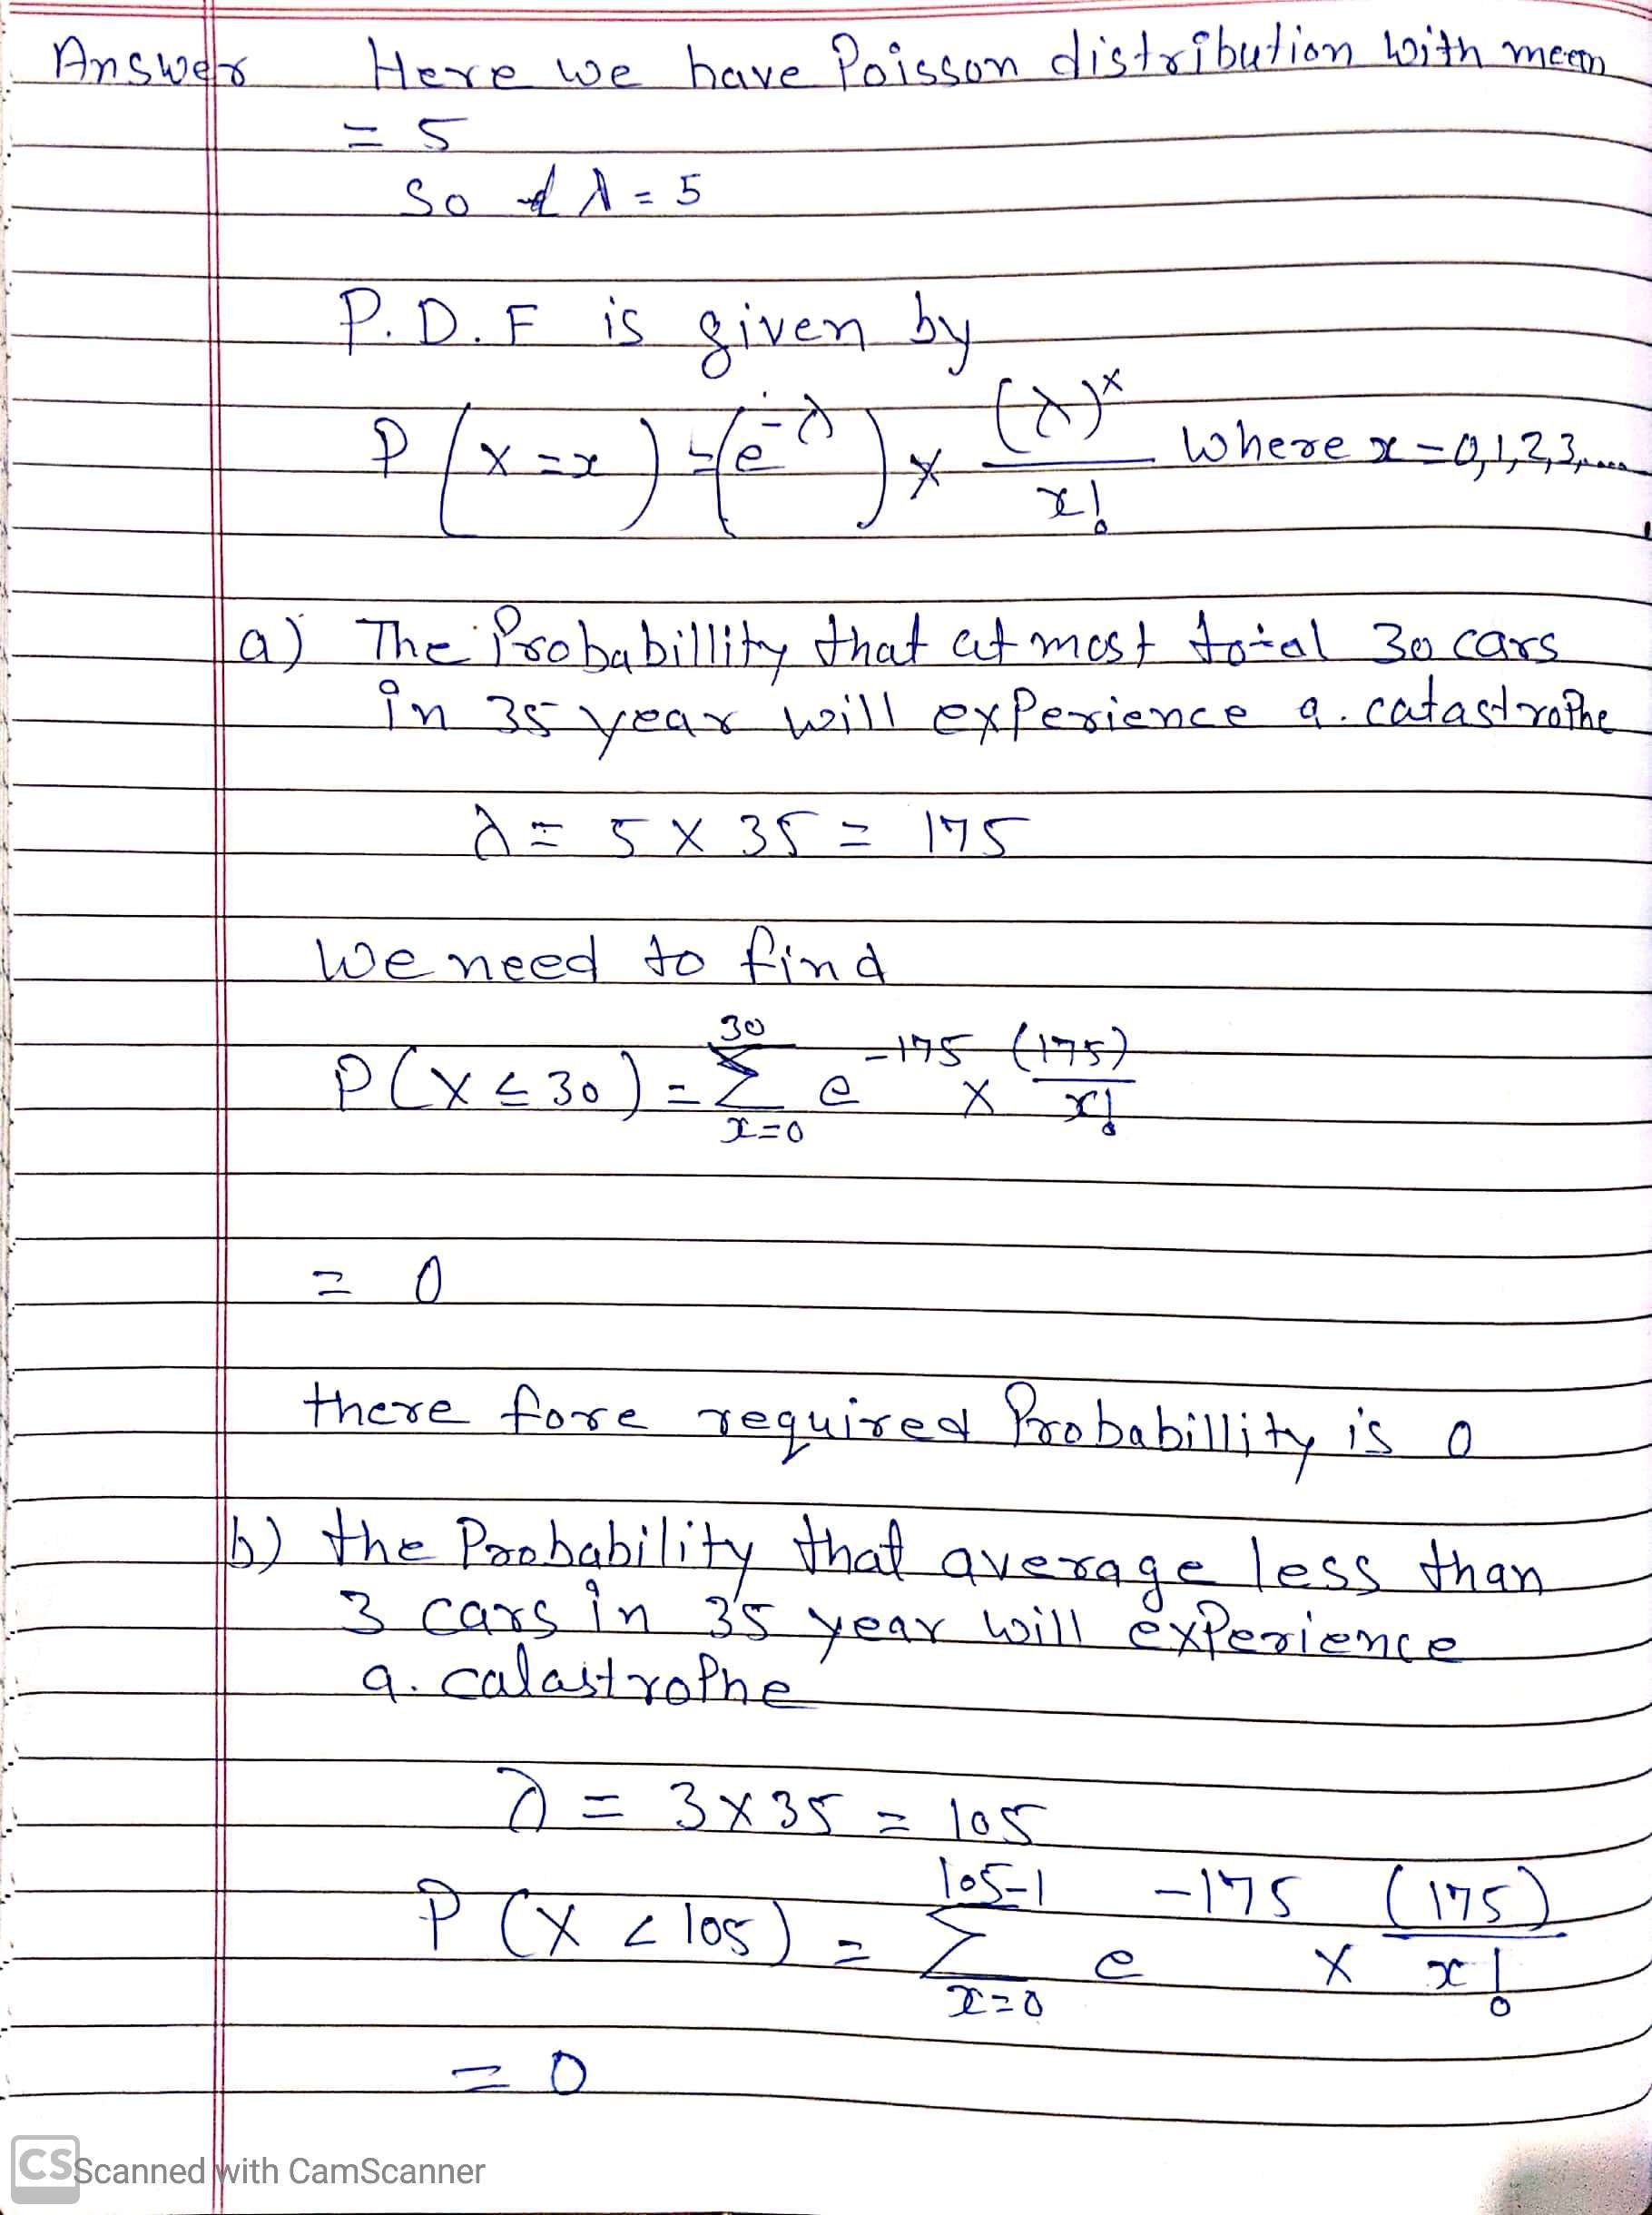 Answer Here we have Poisson distribution with mean
= 5
So λ = 5
P.D.F is given by
P(X=x) = (e^-λ) × (λ)^x / x! where x = 0,1,2,3,....
a) The Probabillity that at most total 30 cars
in 35 year will experience a. catastrophe
λ = 5 × 35 = 175
We need to find
P(X ≤ 30) = 30 Σ x=0 e^-175 × (175) / x!
= 0
there fore required Probabillity is 0
b) the Probability that average less than
3 cars in 35 year will experience
a. calastrophe
λ = 3 × 35 = 105
P(X < 105) = 105-1 Σ x=0 e^-175 × (175) / x!
= 0
CS Scanned with CamScanner